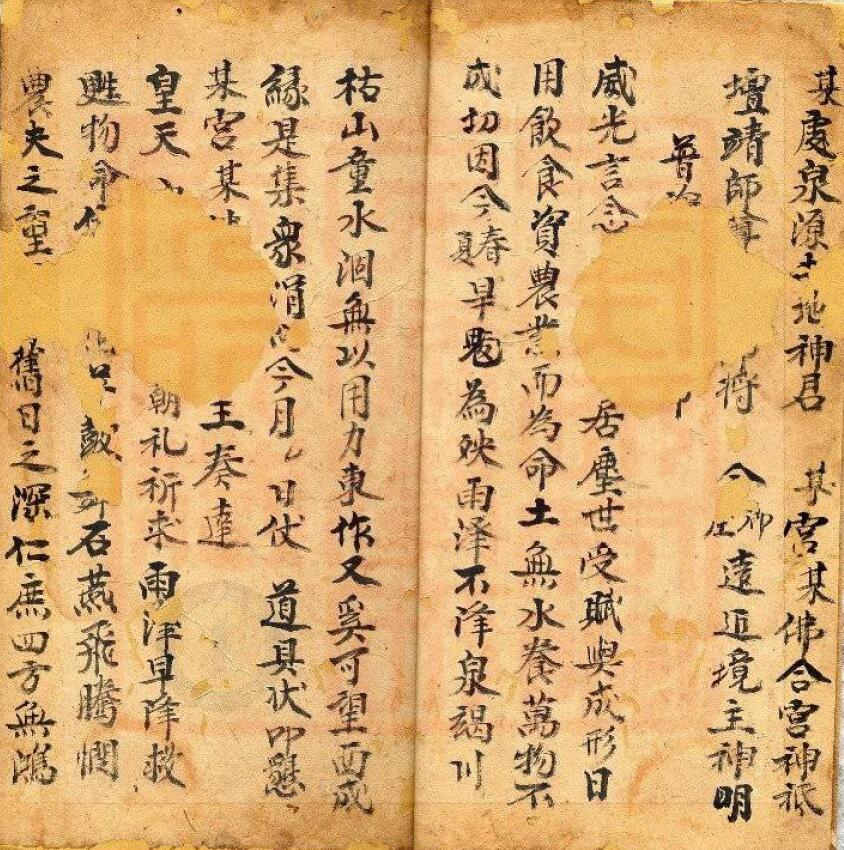 某處泉源土地神君 某宮某佛合宮神祗
壇靖師 將 今 遠近境主神明
普
威光言念 居塵世受賦與成形日
用飲食資農業而為命土無水養萬物不
成切因今春夏旱魃為殃雨泽不泽泉竭川
枯山童水涸無以用力東作又奚可望西成
緣是集眾涓 今月 日伏 道具狀叩懇
某宮某 王奏達
皇天 朝礼祈求雨泽早降救
甦物命 鼓 石燕飛騰憫
農夫之 舊日之深仁庶四方無鴻